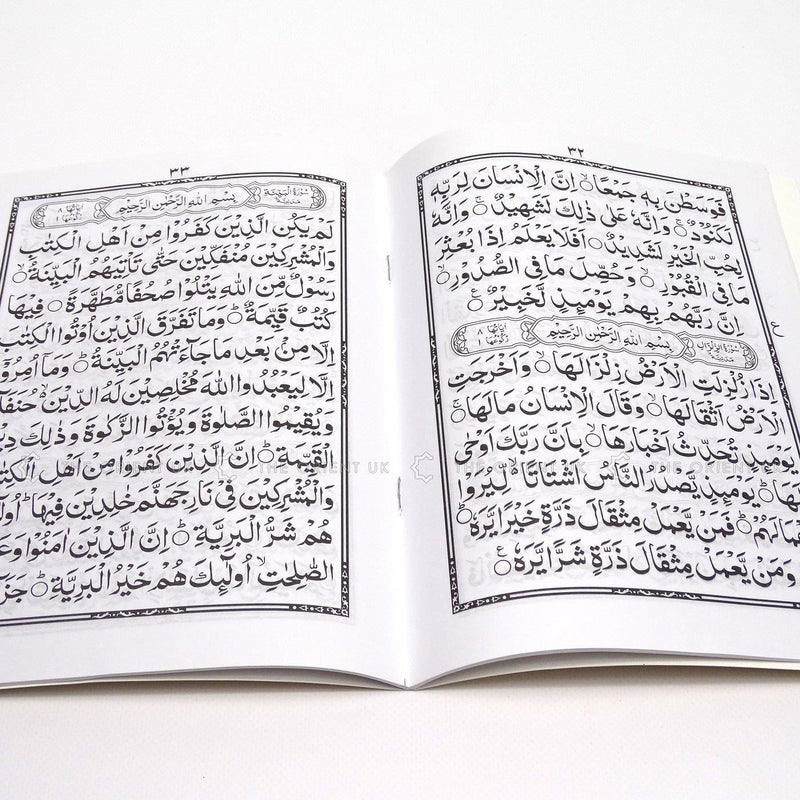 ٣٢
فَوَسَطْنَ بِهٖ جَمْعًا ۙ اِنَّ الْاِنْسَانَ لِرَبِّهٖ
لَكَنُوْدٌ ۚ وَاِنَّهٗ عَلٰى ذٰلِكَ لَشَهِيْدٌ ۚ وَاِنَّهٗ
لِحُبِّ الْخَيْرِ لَشَدِيْدٌ ؕ اَفَلَا يَعْلَمُ اِذَا بُعْثِرَ
مَا فِى الْقُبُوْرِ ۙ وَحُصِّلَ مَا فِى الصُّدُوْرِ ۙ
اِنَّ رَبَّهُمْ بِهِمْ يَوْمَئِذٍ لَّخَبِيْرٌ
بِسْمِ اللهِ الرَّحْمٰنِ الرَّحِيْمِ
اِذَا زُلْزِلَتِ الْاَرْضُ زِلْزَالَهَا ۙ وَاَخْرَجَتِ
الْاَرْضُ اَثْقَالَهَا ۙ وَقَالَ الْاِنْسَانُ مَالَهَا ۚ
يَوْمَئِذٍ تُحَدِّثُ اَخْبَارَهَا ۙ بِاَنَّ رَبَّكَ اَوْحٰى
يَوْمَئِذٍ يَّصْدُرُ النَّاسُ اَشْتَاتًا ۙ لِّيُرَوْا
فَمَنْ يَّعْمَلْ مِثْقَالَ ذَرَّةٍ خَيْرًا يَّرَهٗ
وَمَنْ يَّعْمَلْ مِثْقَالَ ذَرَّةٍ شَرًّا يَّرَهٗ
٣٣
سُوْرَةُ الْبَيِّنَةِ بِسْمِ اللهِ الرَّحْمٰنِ الرَّحِيْمِ
لَمْ يَكُنِ الَّذِيْنَ كَفَرُوْا مِنْ اَهْلِ الْكِتٰبِ
وَالْمُشْرِكِيْنَ مُنْفَكِّيْنَ حَتّٰى تَاْتِيَهُمُ الْبَيِّنَةُ ۙ
رَسُوْلٌ مِّنَ اللهِ يَتْلُوْا صُحُفًا مُّطَهَّرَةً ۙ فِيْهَا
كُتُبٌ قَيِّمَةٌ ؕ وَمَا تَفَرَّقَ الَّذِيْنَ اُوْتُوا الْكِتٰبَ
اِلَّا مِنْۢ بَعْدِ مَا جَآءَتْهُمُ الْبَيِّنَةُ ؕ وَمَآ اُمِرُوْٓا
اِلَّا لِيَعْبُدُوا اللهَ مُخْلِصِيْنَ لَهُ الدِّيْنَ ۙ
وَيُقِيْمُوا الصَّلٰوةَ وَيُؤْتُوا الزَّكٰوةَ وَذٰلِكَ
الْقَيِّمَةِ ؕ اِنَّ الَّذِيْنَ كَفَرُوْا مِنْ اَهْلِ
وَالْمُشْرِكِيْنَ فِيْ نَارِ جَهَنَّمَ خٰلِدِيْنَ فِيْهَا ؕ
هُمْ شَرُّ الْبَرِيَّةِ ؕ اِنَّ الَّذِيْنَ اٰمَنُوْا
الصّٰلِحٰتِ ۙ اُولٰٓئِكَ هُمْ خَيْرُ الْبَرِيَّةِ ؕ
THE ORIENT UK